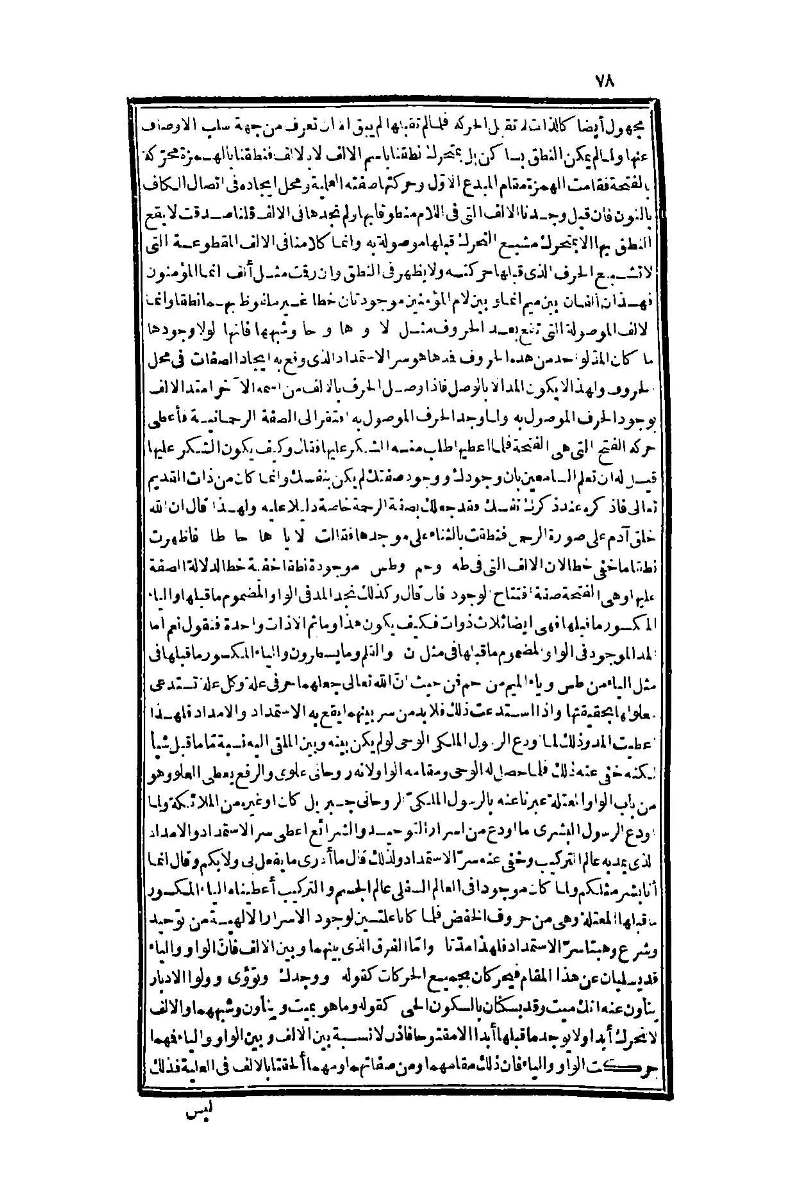 ٧٨
مجهول أيضا كالذات لا تقبل الحركة فلما لم تقبلها لم يبق الا ان تعرف من جهة سلب الاوصاف
عنها ولما لم يمكن النطق بساكن بل بمتحرك نطقنا باسم الالف لا بالالف فنطقنا بالهمزة محركة
بالفتحة فقامت الهمزة مقام المبدع الاول وحركتها صفته العلية ومحل ايجاده في اتصال الكاف
بالنون فان قيل وجدنا الالف التى فى اللام منطوقا بها ولم نجدها فى الالف قلنا صدقت لا يقع
النطق بها الا بمتحرك مشبع التحرك قبلها موصولة به وانما كلامنا فى الالف المقطوعة التى
لا تشبع الحرف الذى قبلها حركته ولا يظهر فى النطق وان رقت مثل ألف انما المؤمنون
فهذان ألفان بين ميم انما وبين لام المؤمنين موجودتان خطا غير ملفوظ بهما نطقا وانما
لالف الموصولة التى تقع بعد الحروف مثل لا و ها و حا وشبهها فانها لولا وجودها
ما كان المد لواحد من هذه الحروف فمدها هو سر الاستمداد الذى وقع به ايجاد الصفات فى محل
لحروف ولهذا لا يكون المد الا بالوصل فاذا وصل الحرف بالالف من اسمه الآخر امتد الالف
بوجود الحرف الموصول به ولما وجد الحرف الموصول به افتقر الى الصفة الرحمانية فأعطى
حركة الفتح التى هى الفتحة فلما اعطيها طلب منه الشكر عليها فقال وكيف يكون الشكر عليها
قيل له ان تعلم السامعين بان وجودك ووجود صفتك لم يكن بنفسك وانما كان من ذات القديم
تعالى فاذكره عند ذكرك نفسك فقد جعلك بصفة الرحمة خاصة دليلا عليه ولهذا قال ان الله
خلق آدم على صورة الرحمن فنطقت بالثناء على موجدها فقالت لا يا ها حا طا فاظهرت
نطقا ما خفى خطا لان الالف التى فى طه وحم وطس موجودة نطقا خفية خطا لدلالة الصفة
عليها وهى الفتحة صفة افتتاح الوجود فان قال وكذلك نجد المد فى الواو المضموم ما قبلها والياء
المكسور ما قبلها فهى ايضا ثلاث ذوات فكيف يكون هذا وما ثم الا ذات واحدة فنقول نعم اما
لمد الموجود فى الواو المضموم ما قبلها فى مثل ن والقلم وما يسطرون والياء المكسور ما قبلها فى
مثل الياء من طس وياء الميم من حم فمن حيث انّ الله تعالى جعلهما حرفى علة وكل علة تستدعى
معلولها بحقيقتها واذا استدعت ذلك فلا بد من سر بينهما يقع به الاستمداد والامداد فلهذا
اعطيت المد وذلك لما اودع الرسول الملكى الوحى لو لم يكن بينه وبين الملقى اليه نسبة تما ما قبل شيأ
لكنه خفى عنه ذلك فلما حصل له الوحى ومقامه الواو لانه روحانى علوى والرفع يعطى العلو وهو
من باب الواو المعتلة عبرنا عنه بالرسول الملكىّ الروحانى جبريل كان او غيره من الملائكة ولما
اودع الرسول البشرى ما اودع من اسرار التوحيد والشرائع اعطى سر الاستمداد والامداد
لذى يمد به عالم التركيب وخفى عنه سرّ الاستمداد ولذلك قال ما أدرى ما يفعل بى ولا بكم وقال انما
أنا بشر مثلكم ولما كان موجودا فى العالم السفلى عالم الجسم والتركيب أعطيناه الياء المكسور
ما قبلها المعتلة وهى من حروف الخفض فلما كانا علتين لوجود الاسرار الالهية من توحيد
وشرع وهبتا سرّ الاستمداد فلهذا مدّتا وامّا الفرق الذى بينهما وبين الالف فانّ الواو والياء
قد يسلبان عن هذا المقام فيحركان بجميع الحركات كقوله ووجدك وتؤوى وولوا الادبار
ينأون عنه انك ميت وقد يسكنان بالسكون الحى كقوله وما هو بميت وينأون وشبههما والالف
لا تحرك أبدا ولا يوجد ما قبلها أبدا الا مفتوحا فاذن لا نسبة بين الالف وبين الواو والياء فهما
حركت الواو والياء فان ذلك مقامهما ومن صفاتهما ومهما ألحقتا بالالف فى العلية فذلك
ليس